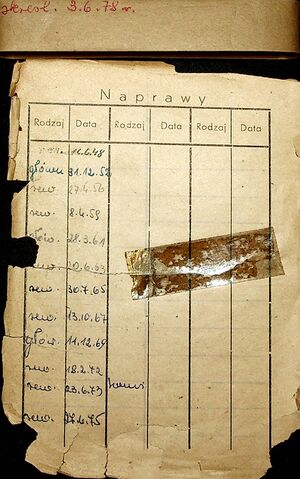 skreśl. 3.6.78 r.
Naprawy
Rodzaj Data Rodzaj Data Rodzaj Data
11.6.48
główna 31.12.52
rew. 27.4.56
rew. 8.4.59
głów. 28.3.61
rew. 20.6.63
rew. 30.7.65
rew. 13.10.67
głów. 11.12.69
rew. 18.2.72
rew. 23.6.73
rew. 27.6.75